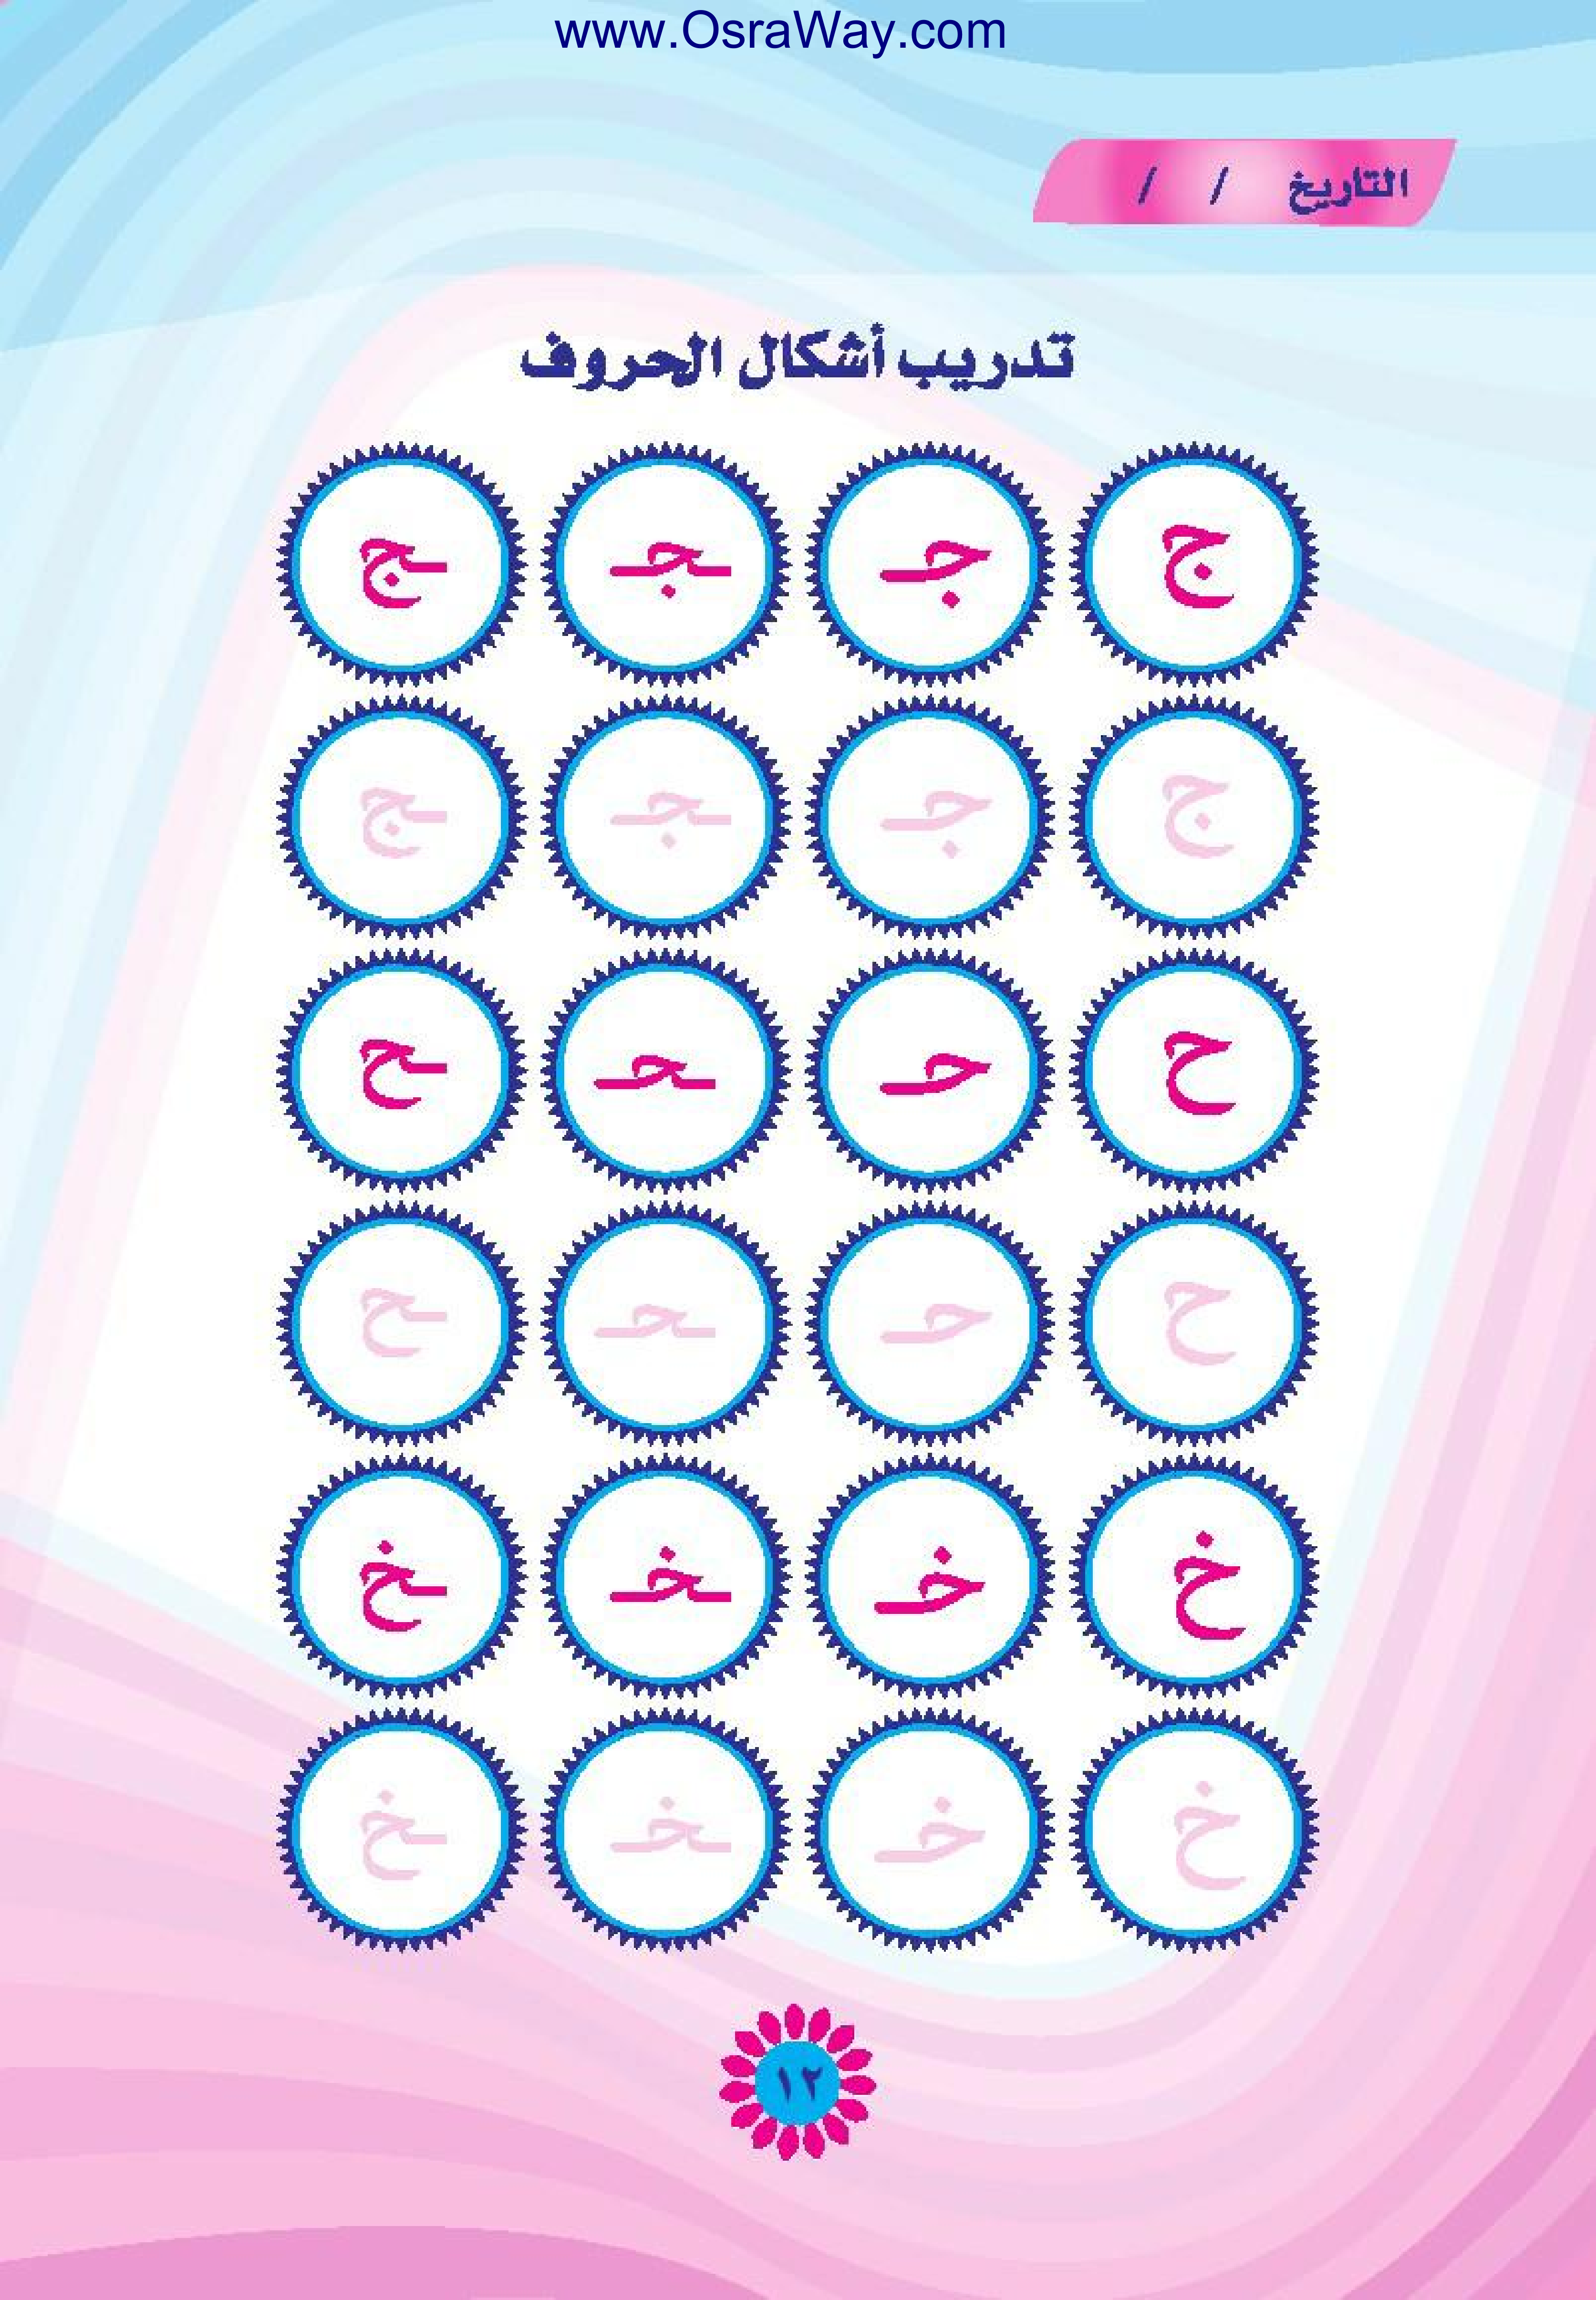 www.OsraWay.com
التاريخ / /
تدريب أشكال الحروف
ج جـ ـجـ ـج
ج جـ ـجـ ـج
ح حـ ـحـ ـح
ح حـ ـحـ ـح
خ خـ ـخـ ـخ
خ خـ ـخـ ـخ
١٢